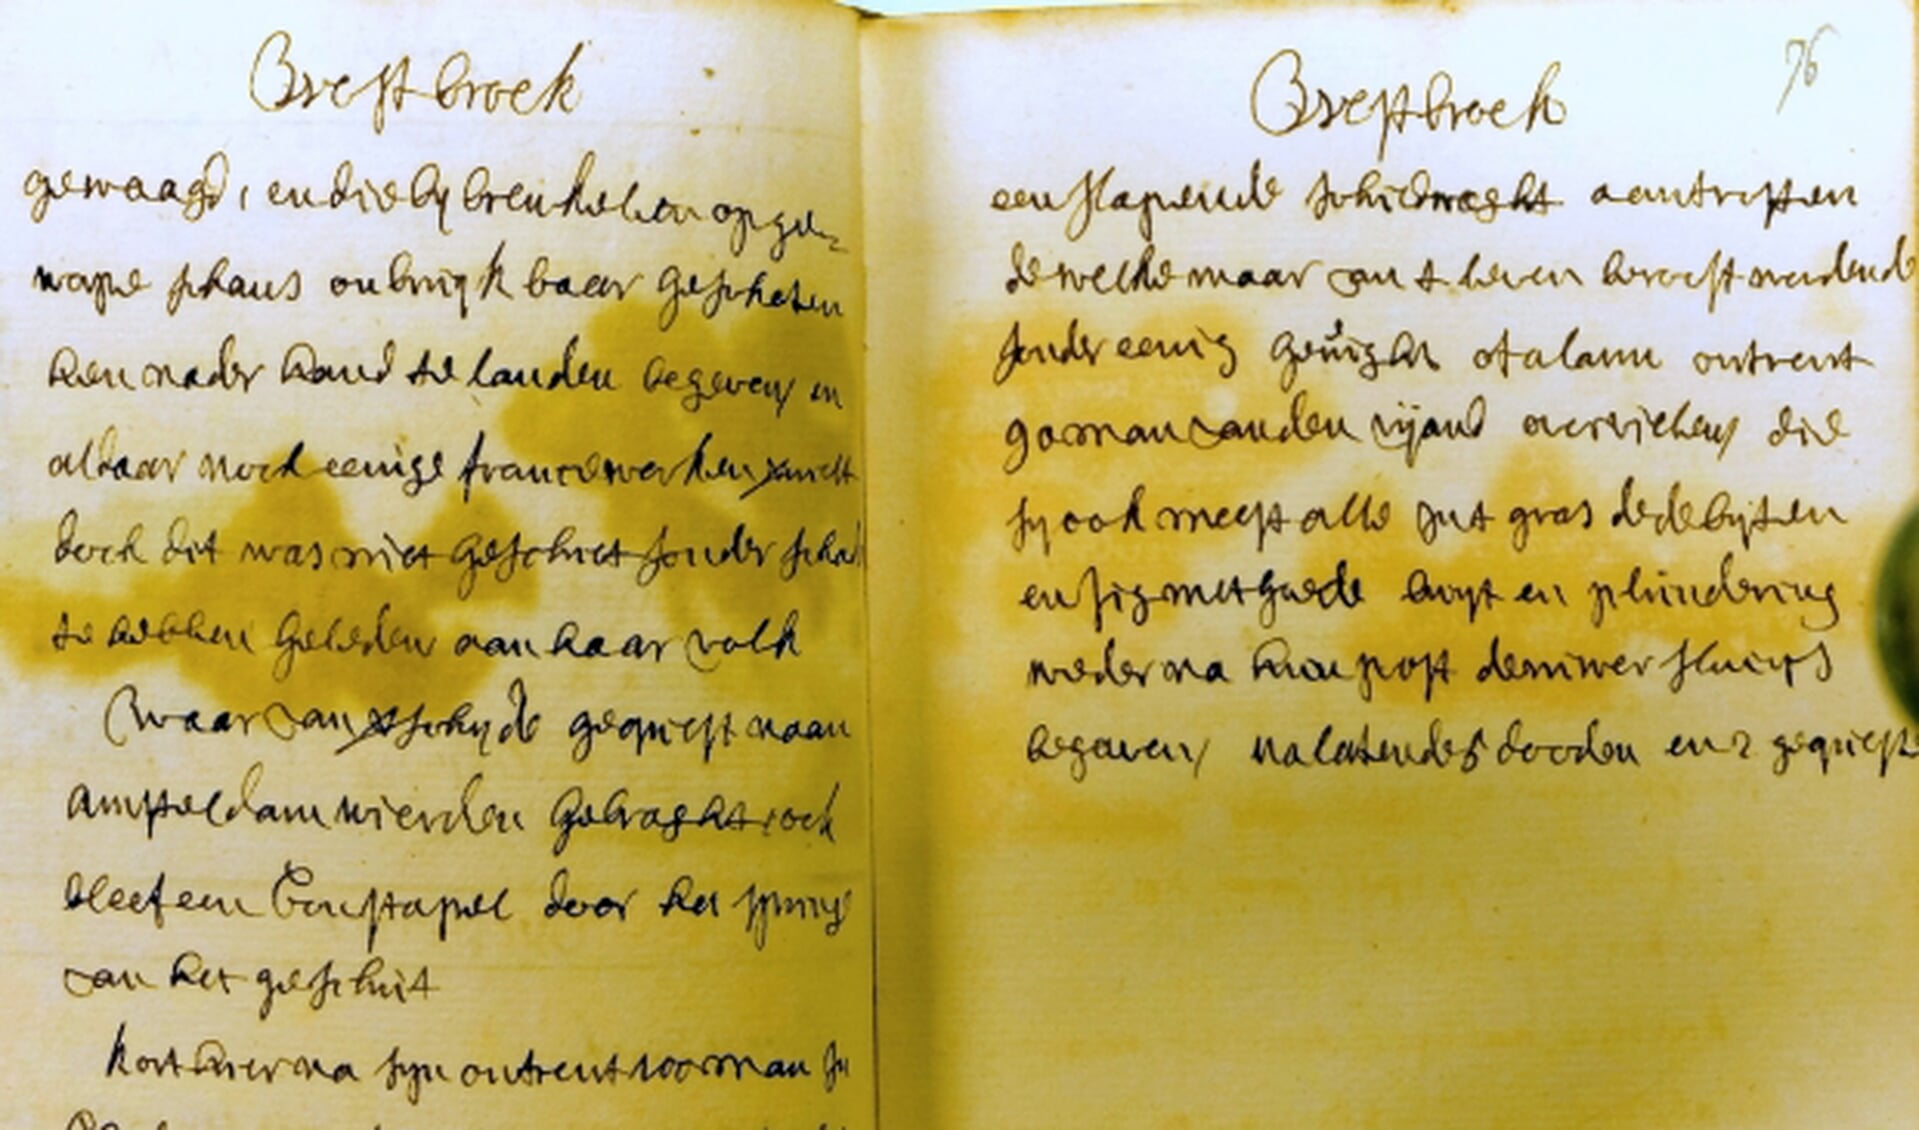 Brestbroek
gewaagd, en die by breukelen opge-
worpe schans onbruijkbaar geschoten
hen nader hand te landen begeven en
aldaar noch eenige francse werken
doch dit was niet geschiet sonder scha
te hebben geleden aan haar volk
Waar van gequest naan
amsteldam wierden gebraght, ock
bleef een Constapel door het spring
van het geschut
kort hier na syn ontrent 100 man in
Brestbroek
76
een slapende schildwaght aantreffen
dewelke maar van t leven berooft werdende
sonder eenig gerught of alarm ontrent
90 man van den vijand overvielen die
sy ook meest alle int gras dede byten
en sig met goede buyt en plundering
weder na hun post de niwersluys
begaven, nalatende 5 dooden en 2 gequeste